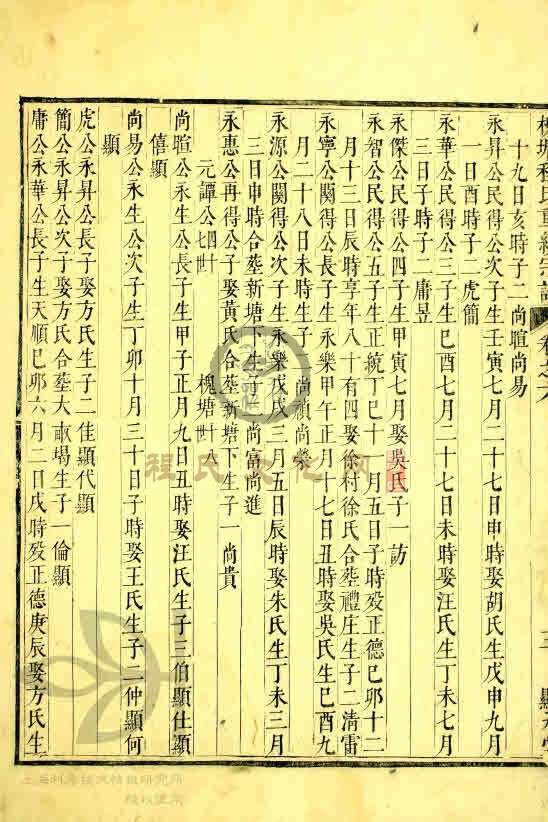 槐塘程氏重續宗譜 卷之六 三 顯承堂
十九日亥時子二尚暄尚易
永昇公民得公次子生壬寅七月二十七日申時娶胡氏生戊申九月
一日酉時子二虎簡
永華公民得公三子生己酉七月二十七日未時娶汪氏生丁未七月
三日子時子二庸昱
永傑公民得公四子生甲寅七月娶吳氏子一訪
永智公民得公五子生正統丁巳十 月五日子時歿正德己卯十二
月十三日辰時享年八十有四娶徐村徐氏合葬禮庄生子二清雷
永寧公關得公長子生永樂甲午正月十七日丑時娶吳氏生己酉九
月二十八日未時生子 尚禎尚榮
永源公關得公次子生永樂戊戌三月五日辰時娶朱氏生丁未三月
三日申時合葬新塘下生子 尚富尚進
永惠公再得公子娶黃氏合葬新塘下生子一尚貴
元譚公四七世 槐塘廿八
尚暄公永生公長子生甲子正月九日丑時娶汪氏生子三伯顯仕顯
僖顯
尚易公永生公次子生丁卯十月三十日子時娶王氏生子二仲顯何
顯
虎公永昇公長子娶方氏生子二佳顯代顯
簡公永昇公次子娶方氏合葬大畝塌生子一倫顯
庸公永華公長子生天順己卯六月二日戌時歿正德庚辰娶方氏生
程氏文化网